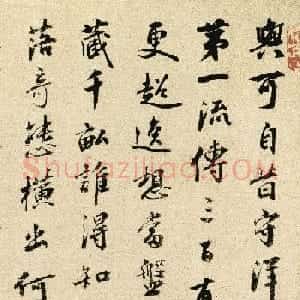 與可自昔守洋
第一流傳三百
更超逸想當盤
藏千畝誰得知
落奇態橫出何
Shufaziliao.COM